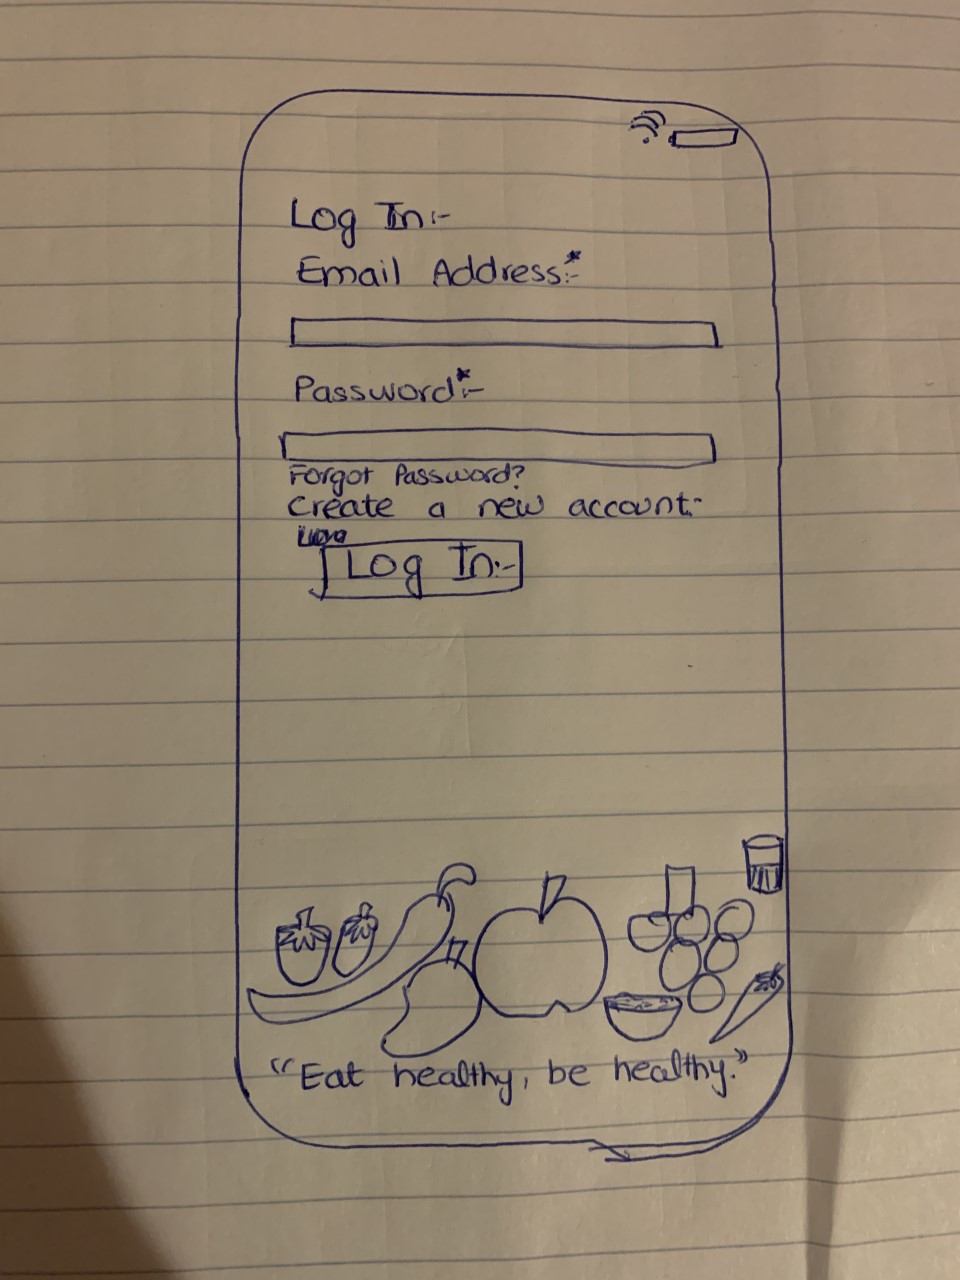 Log In:-
Email Address*:-
Password*:-
Forgot Password?
Create a new account:-
Log In:-
"Eat healthy, be healthy."